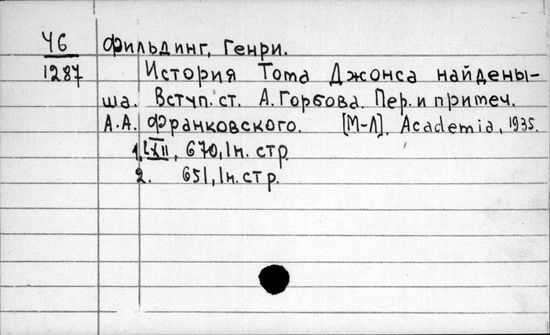 Ч6 Фильдинг, Генри.
1287 История Тома Джонса найдены-
ша. Вступ. ст. А. Горбова. Пер. и примеч.
А.А. Франковского. [М-Л]. Academia, 1935.
1. LXII, 670, 1н. стр.
2. 651, 1н. стр.